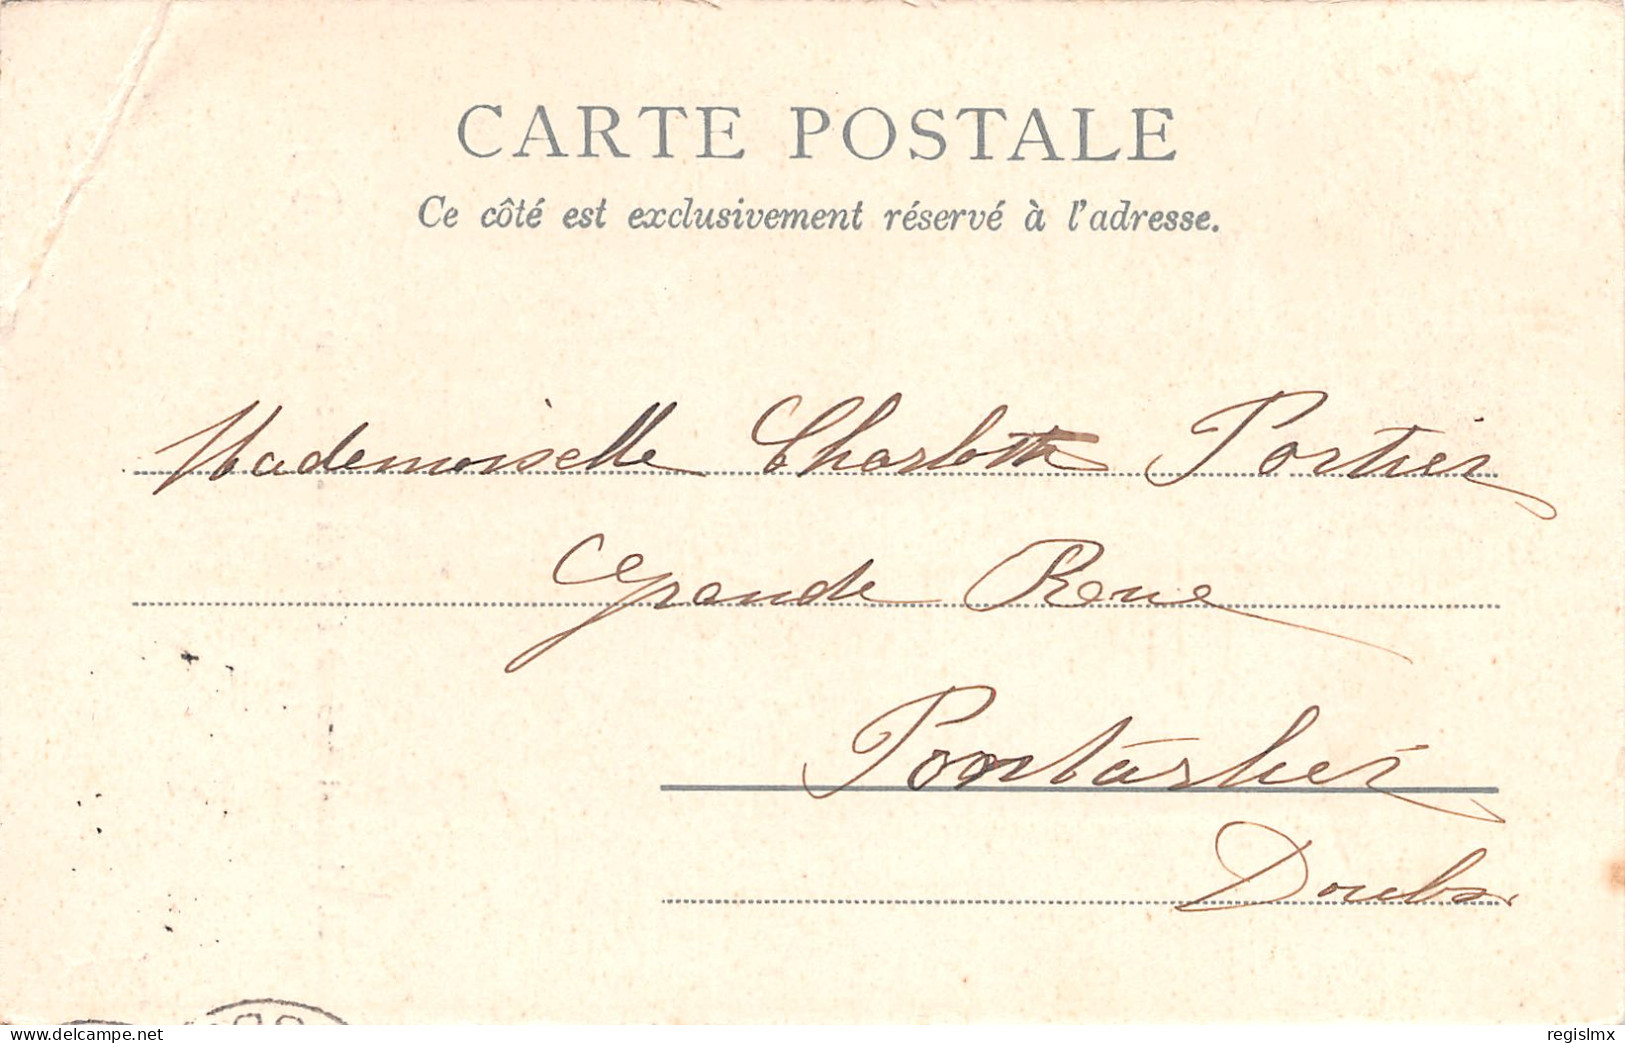 CARTE POSTALE
Ce côté est exclusivement réservé à l'adresse.
Mademoiselle Charlotte Portier
Grande Rue
Pontarlier
Doubs
www.delcampe.net
regislmx